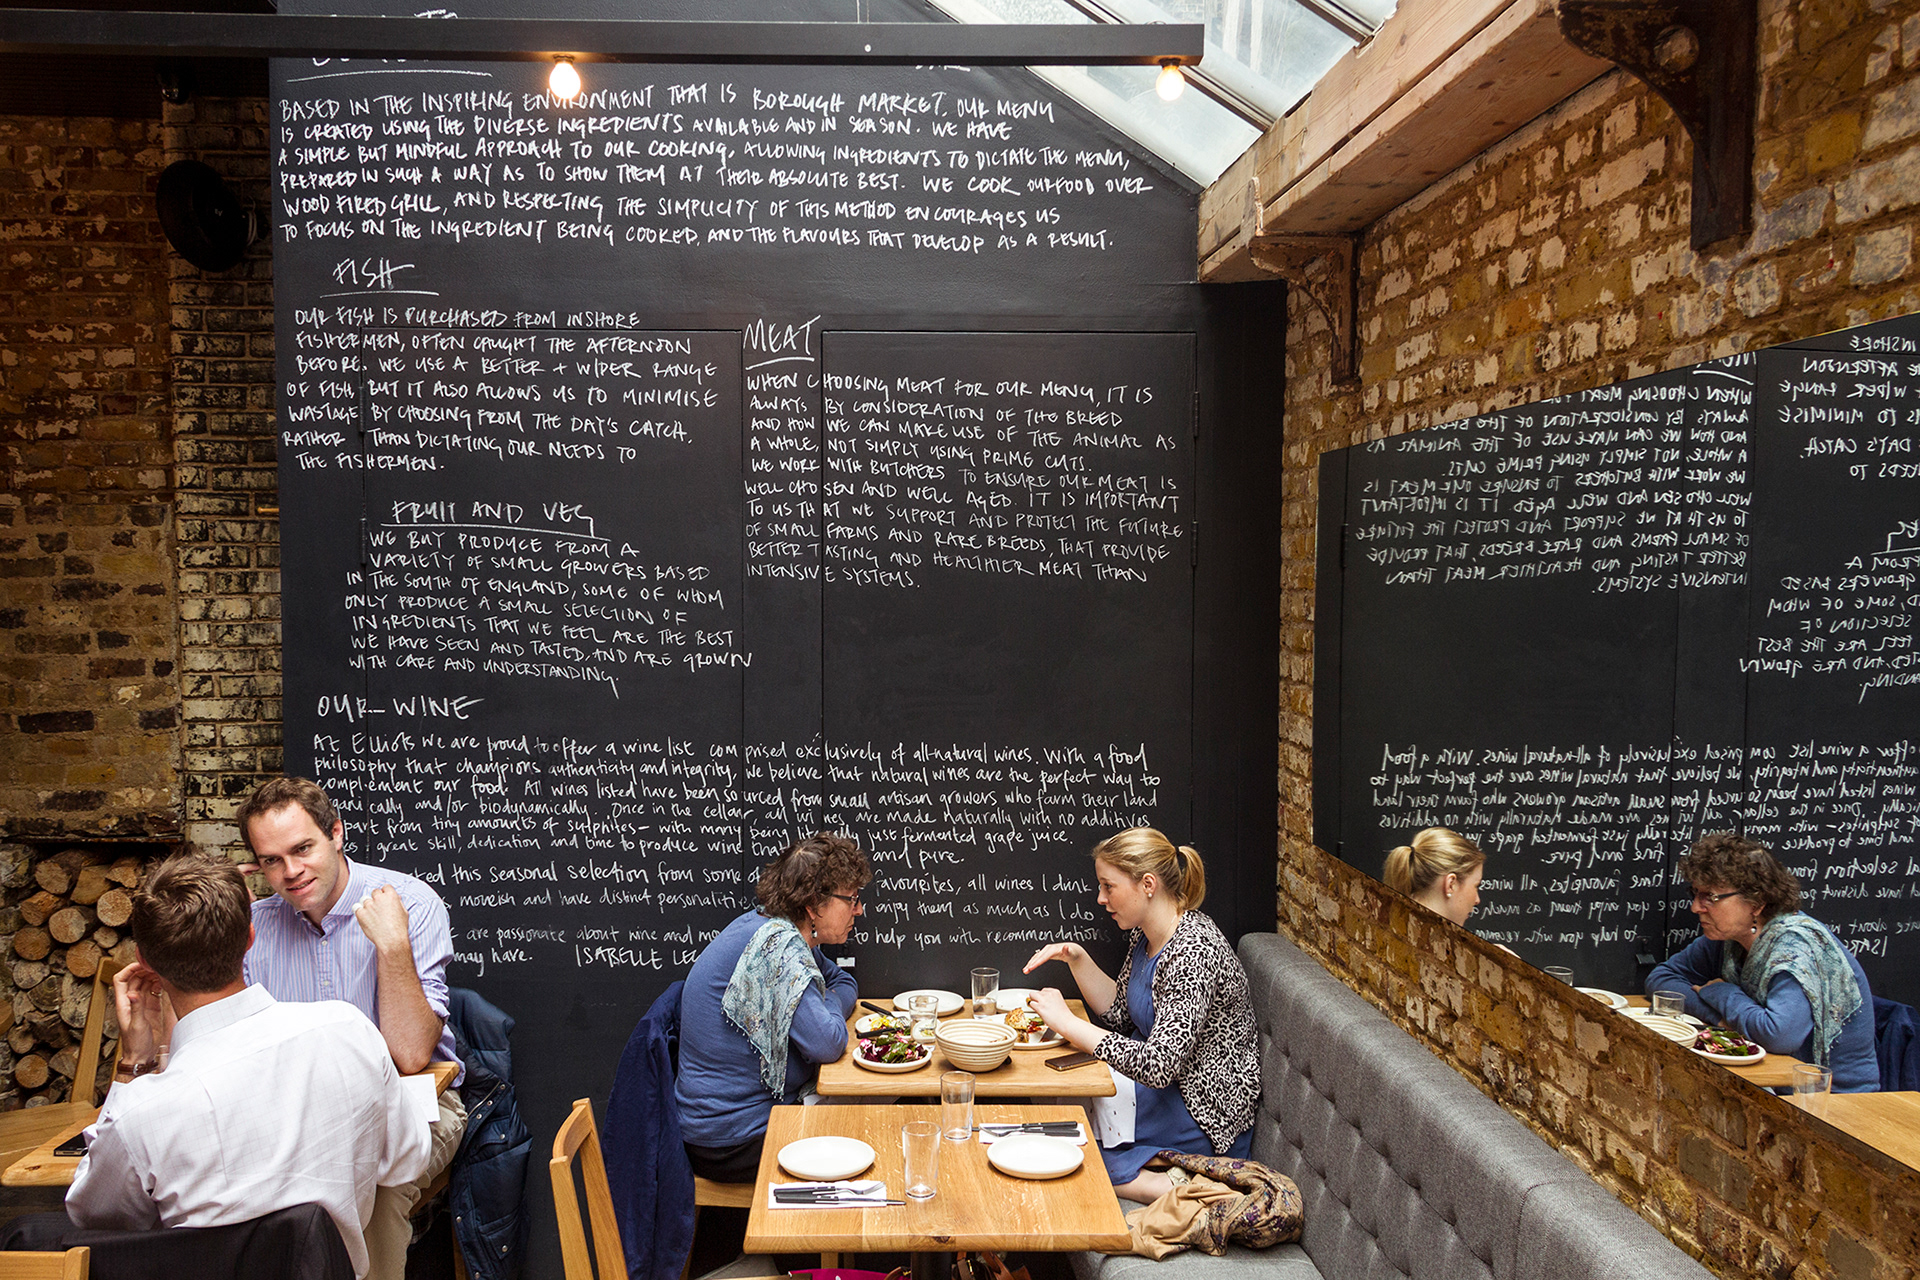 BASED IN THE INSPIRING ENVIRONMENT THAT IS BOROUGH MARKET, OUR MENU
IS CREATED USING THE DIVERSE INGREDIENTS AVAILABLE AND IN SEASON. WE HAVE
A SIMPLE BUT MINDFUL APPROACH TO OUR COOKING, ALLOWING INGREDIENTS TO DICTATE THE MENU,
PREPARED IN SUCH A WAY AS TO SHOW THEM AT THEIR ABSOLUTE BEST. WE COOK OUR FOOD OVER
WOOD FIRED GRILL, AND RESPECTING THE SIMPLICITY OF THIS METHOD ENCOURAGES US
TO FOCUS ON THE INGREDIENT BEING COOKED, AND THE FLAVOURS THAT DEVELOP AS A RESULT.
FISH
OUR FISH IS PURCHASED FROM INSHORE
FISHERMEN, OFTEN CAUGHT THE AFTERNOON
BEFORE. WE USE A BETTER + WIDER RANGE
OF FISH, BUT IT ALSO ALLOWS US TO MINIMISE
WASTAGE BY CHOOSING FROM THE DAY'S CATCH,
RATHER THAN DICTATING OUR NEEDS TO
THE FISHERMEN.
MEAT
WHEN CHOOSING MEAT FOR OUR MENU, IT IS
ALWAYS BY CONSIDERATION OF THE BREED
AND HOW WE CAN MAKE USE OF THE ANIMAL AS
A WHOLE, NOT SIMPLY USING PRIME CUTS.
WE WORK WITH BUTCHERS TO ENSURE OUR MEAT IS
WELL CHOSEN AND WELL AGED. IT IS IMPORTANT
TO US THAT WE SUPPORT AND PROTECT THE FUTURE
OF SMALL FARMS AND RARE BREEDS, THAT PROVIDE
BETTER TASTING AND HEALTHIER MEAT THAN
INTENSIVE SYSTEMS.
FRUIT AND VEG
WE BUY PRODUCE FROM A
VARIETY OF SMALL GROWERS BASED
IN THE SOUTH OF ENGLAND, SOME OF WHOM
ONLY PRODUCE A SMALL SELECTION OF
INGREDIENTS THAT WE FEEL ARE THE BEST
WE HAVE SEEN AND TASTED, AND ARE GROWN
WITH CARE AND UNDERSTANDING.
OUR WINE
At Elliots we are proud to offer a wine list comprised exclusively of all-natural wines. With a food
philosophy that champions authenticity and integrity, we believe that natural wines are the perfect way to
complement our food. All wines listed have been sourced from small artisan growers who farm their land
organically and/or biodynamically. Once in the cellar, all wines are made naturally with no additives
apart from tiny amounts of sulphites – with many being literally just fermented grape juice.
great skill, dedication and time to produce wine that and pure.
this seasonal selection from some of favourites, all wines I drink
nourish and have distinct personalities enjoy them as much as I do
are passionate about wine and to help you with recommendations
may have. ISABELLE